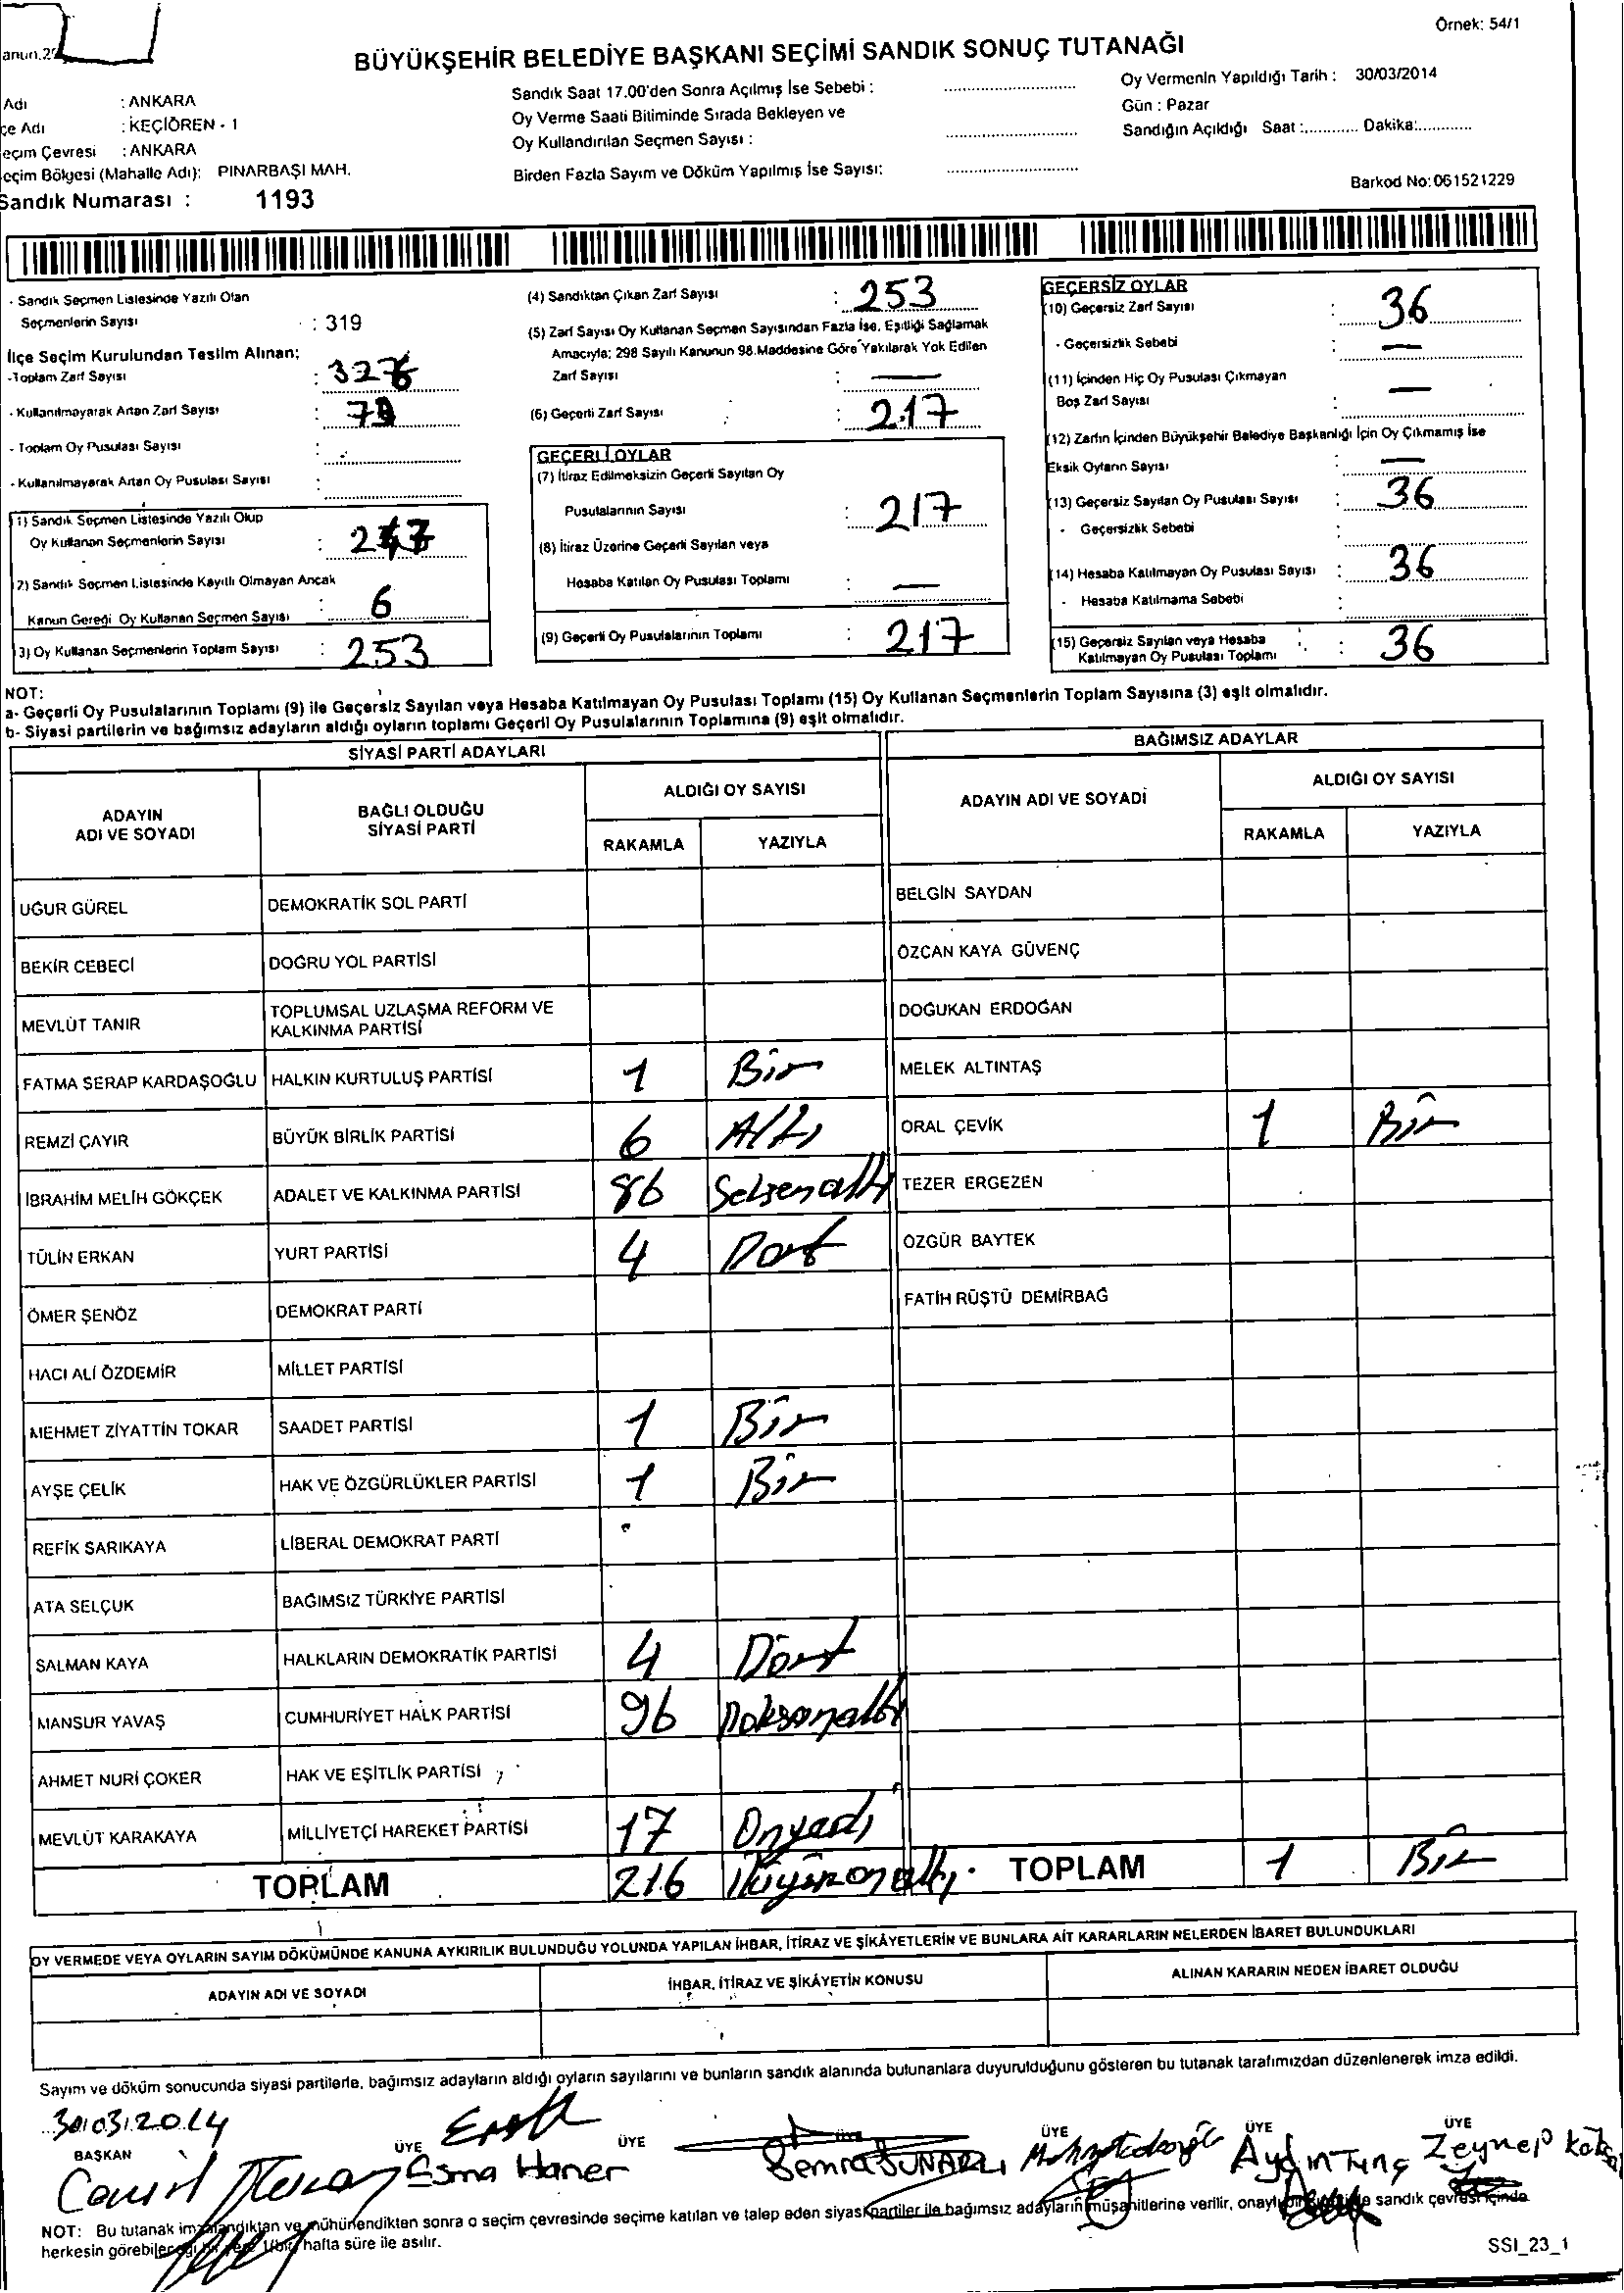 Örnek: 54/1
BÜYÜKŞEHİR BELEDİYE BAŞKANI SEÇİMİ SANDIK SONUÇ TUTANAĞI
Adı : ANKARA
çe Adı : KEÇİÖREN - 1
eçim Çevresi : ANKARA
eçim Bölgesi (Mahalle Adı): PINARBAŞI MAH.
Sandık Numarası : 1193
Sandık Saat 17.00'den Sonra Açılmış İse Sebebi :
Oy Verme Saati Bitiminde Sırada Bekleyen ve
Oy Kullandırılan Seçmen Sayısı :
Birden Fazla Sayım ve Döküm Yapılmış İse Sayısı:
Oy Vermenin Yapıldığı Tarih : 30/03/2014
Gün : Pazar
Sandığın Açıldığı Saat :............ Dakika:............
Barkod No:061521229
- Sandık Seçmen Listesinde Yazılı Olan
Seçmenlerin Sayısı : 319
İlçe Seçim Kurulundan Teslim Alınan;
-Toplam Zarf Sayısı : 326
- Kullanılmayarak Artan Zarf Sayısı :
- Toplam Oy Pusulası Sayısı :
- Kullanılmayarak Artan Oy Pusulası Sayısı :
1) Sandık Seçmen Listesinde Yazılı Olup
Oy Kullanan Seçmenlerin Sayısı : 247
2) Sandık Seçmen Listesinde Kayıtlı Olmayan Ancak
Kanun Gereği Oy Kullanan Seçmen Sayısı : 6
3) Oy Kullanan Seçmenlerin Toplam Sayısı : 253
(4) Sandıktan Çıkan Zarf Sayısı : 253
(5) Zarf Sayısı Oy Kullanan Seçmen Sayısından Fazla İse, Eşitliği Sağlamak
Amacıyla; 298 Sayılı Kanunun 98.Maddesine Göre Yakılarak Yok Edilen
Zarf Sayısı : —
(6) Geçerli Zarf Sayısı : 217
GEÇERLİ OYLAR
(7) İtiraz Edilmeksizin Geçerli Sayılan Oy
Pusulalarının Sayısı : 217
(8) İtiraz Üzerine Geçerli Sayılan veya
Hesaba Katılan Oy Pusulası Toplamı : —
(9) Geçerli Oy Pusulalarının Toplamı : 217
GEÇERSİZ OYLAR
(10) Geçersiz Zarf Sayısı : 36
- Geçersizlik Sebebi : —
(11) İçinden Hiç Oy Pusulası Çıkmayan
Boş Zarf Sayısı : —
(12) Zarfın İçinden Büyükşehir Belediye Başkanlığı İçin Oy Çıkmamış İse
Eksik Oyların Sayısı : —
(13) Geçersiz Sayılan Oy Pusulası Sayısı : 36
- Geçersizlik Sebebi :
(14) Hesaba Katılmayan Oy Pusulası Sayısı : 36
- Hesaba Katılmama Sebebi :
(15) Geçersiz Sayılan veya Hesaba
Katılmayan Oy Pusulası Toplamı : 36
NOT:
a- Geçerli Oy Pusulalarının Toplamı (9) ile Geçersiz Sayılan veya Hesaba Katılmayan Oy Pusulası Toplamı (15) Oy Kullanan Seçmenlerin Toplam Sayısına (3) eşit olmalıdır.
b- Siyasi partilerin ve bağımsız adayların aldığı oyların toplamı Geçerli Oy Pusulalarının Toplamına (9) eşit olmalıdır.
SİYASİ PARTİ ADAYLARI
ADAYIN ADI VE SOYADI
BAĞLI OLDUĞU SİYASİ PARTİ
ALDIĞI OY SAYISI
RAKAMLA YAZIYLA
UĞUR GÜREL DEMOKRATİK SOL PARTİ
BEKİR CEBECİ DOĞRU YOL PARTİSİ
MEVLÜT TANIR TOPLUMSAL UZLAŞMA REFORM VE KALKINMA PARTİSİ
FATMA SERAP KARDAŞOĞLU HALKIN KURTULUŞ PARTİSİ 1 Bir
REMZİ ÇAYIR BÜYÜK BİRLİK PARTİSİ 6 Altı
İBRAHİM MELİH GÖKÇEK ADALET VE KALKINMA PARTİSİ 86 Seksenaltı
TÜLİN ERKAN YURT PARTİSİ 4 Dört
ÖMER ŞENÖZ DEMOKRAT PARTİ
HACI ALİ ÖZDEMİR MİLLET PARTİSİ
MEHMET ZİYATTİN TOKAR SAADET PARTİSİ 1 Bir
AYŞE ÇELİK HAK VE ÖZGÜRLÜKLER PARTİSİ 1 Bir
REFİK SARIKAYA LİBERAL DEMOKRAT PARTİ
ATA SELÇUK BAĞIMSIZ TÜRKİYE PARTİSİ
SALMAN KAYA HALKLARIN DEMOKRATİK PARTİSİ 4 Dört
MANSUR YAVAŞ CUMHURİYET HALK PARTİSİ 96 Doksanaltı
AHMET NURİ ÇOKER HAK VE EŞİTLİK PARTİSİ
MEVLÜT KARAKAYA MİLLİYETÇİ HAREKET PARTİSİ 17 Onyedi
TOPLAM 216 İkiyüzonaltı
BAĞIMSIZ ADAYLAR
ADAYIN ADI VE SOYADI
ALDIĞI OY SAYISI
RAKAMLA YAZIYLA
BELGİN SAYDAN
ÖZCAN KAYA GÜVENÇ
DOĞUKAN ERDOĞAN
MELEK ALTINTAŞ
ORAL ÇEVİK 1 Bir
TEZER ERGEZEN
ÖZGÜR BAYTEK
FATİH RÜŞTÜ DEMİRBAĞ
TOPLAM 1 Bir
OY VERMEDE VEYA OYLARIN SAYIM DÖKÜMÜNDE KANUNA AYKIRILIK BULUNDUĞU YOLUNDA YAPILAN İHBAR, İTİRAZ VE ŞİKÂYETLERİN VE BUNLARA AİT KARARLARIN NELERDEN İBARET BULUNDUKLARI
ADAYIN ADI VE SOYADI İHBAR, İTİRAZ VE ŞİKÂYETİN KONUSU ALINAN KARARIN NEDEN İBARET OLDUĞU
Sayım ve döküm sonucunda siyasi partilerle, bağımsız adayların aldığı oyların sayılarını ve bunların sandık alanında bulunanlara duyurulduğunu gösteren bu tutanak tarafımızdan düzenlenerek imza edildi.
30.03.2014
BAŞKAN ÜYE ÜYE ÜYE ÜYE ÜYE
Esma Haner Aydın Tunç Zeynep
NOT: Bu tutanak imzalandıktan ve mühürlendikten sonra o seçim çevresinde seçime katılan ve talep eden siyasi partiler ile bağımsız adayların müşahitlerine verilir, sandık çevresi içinde
herkesin görebileceği hafta süre ile asılır.
SSI_23_1